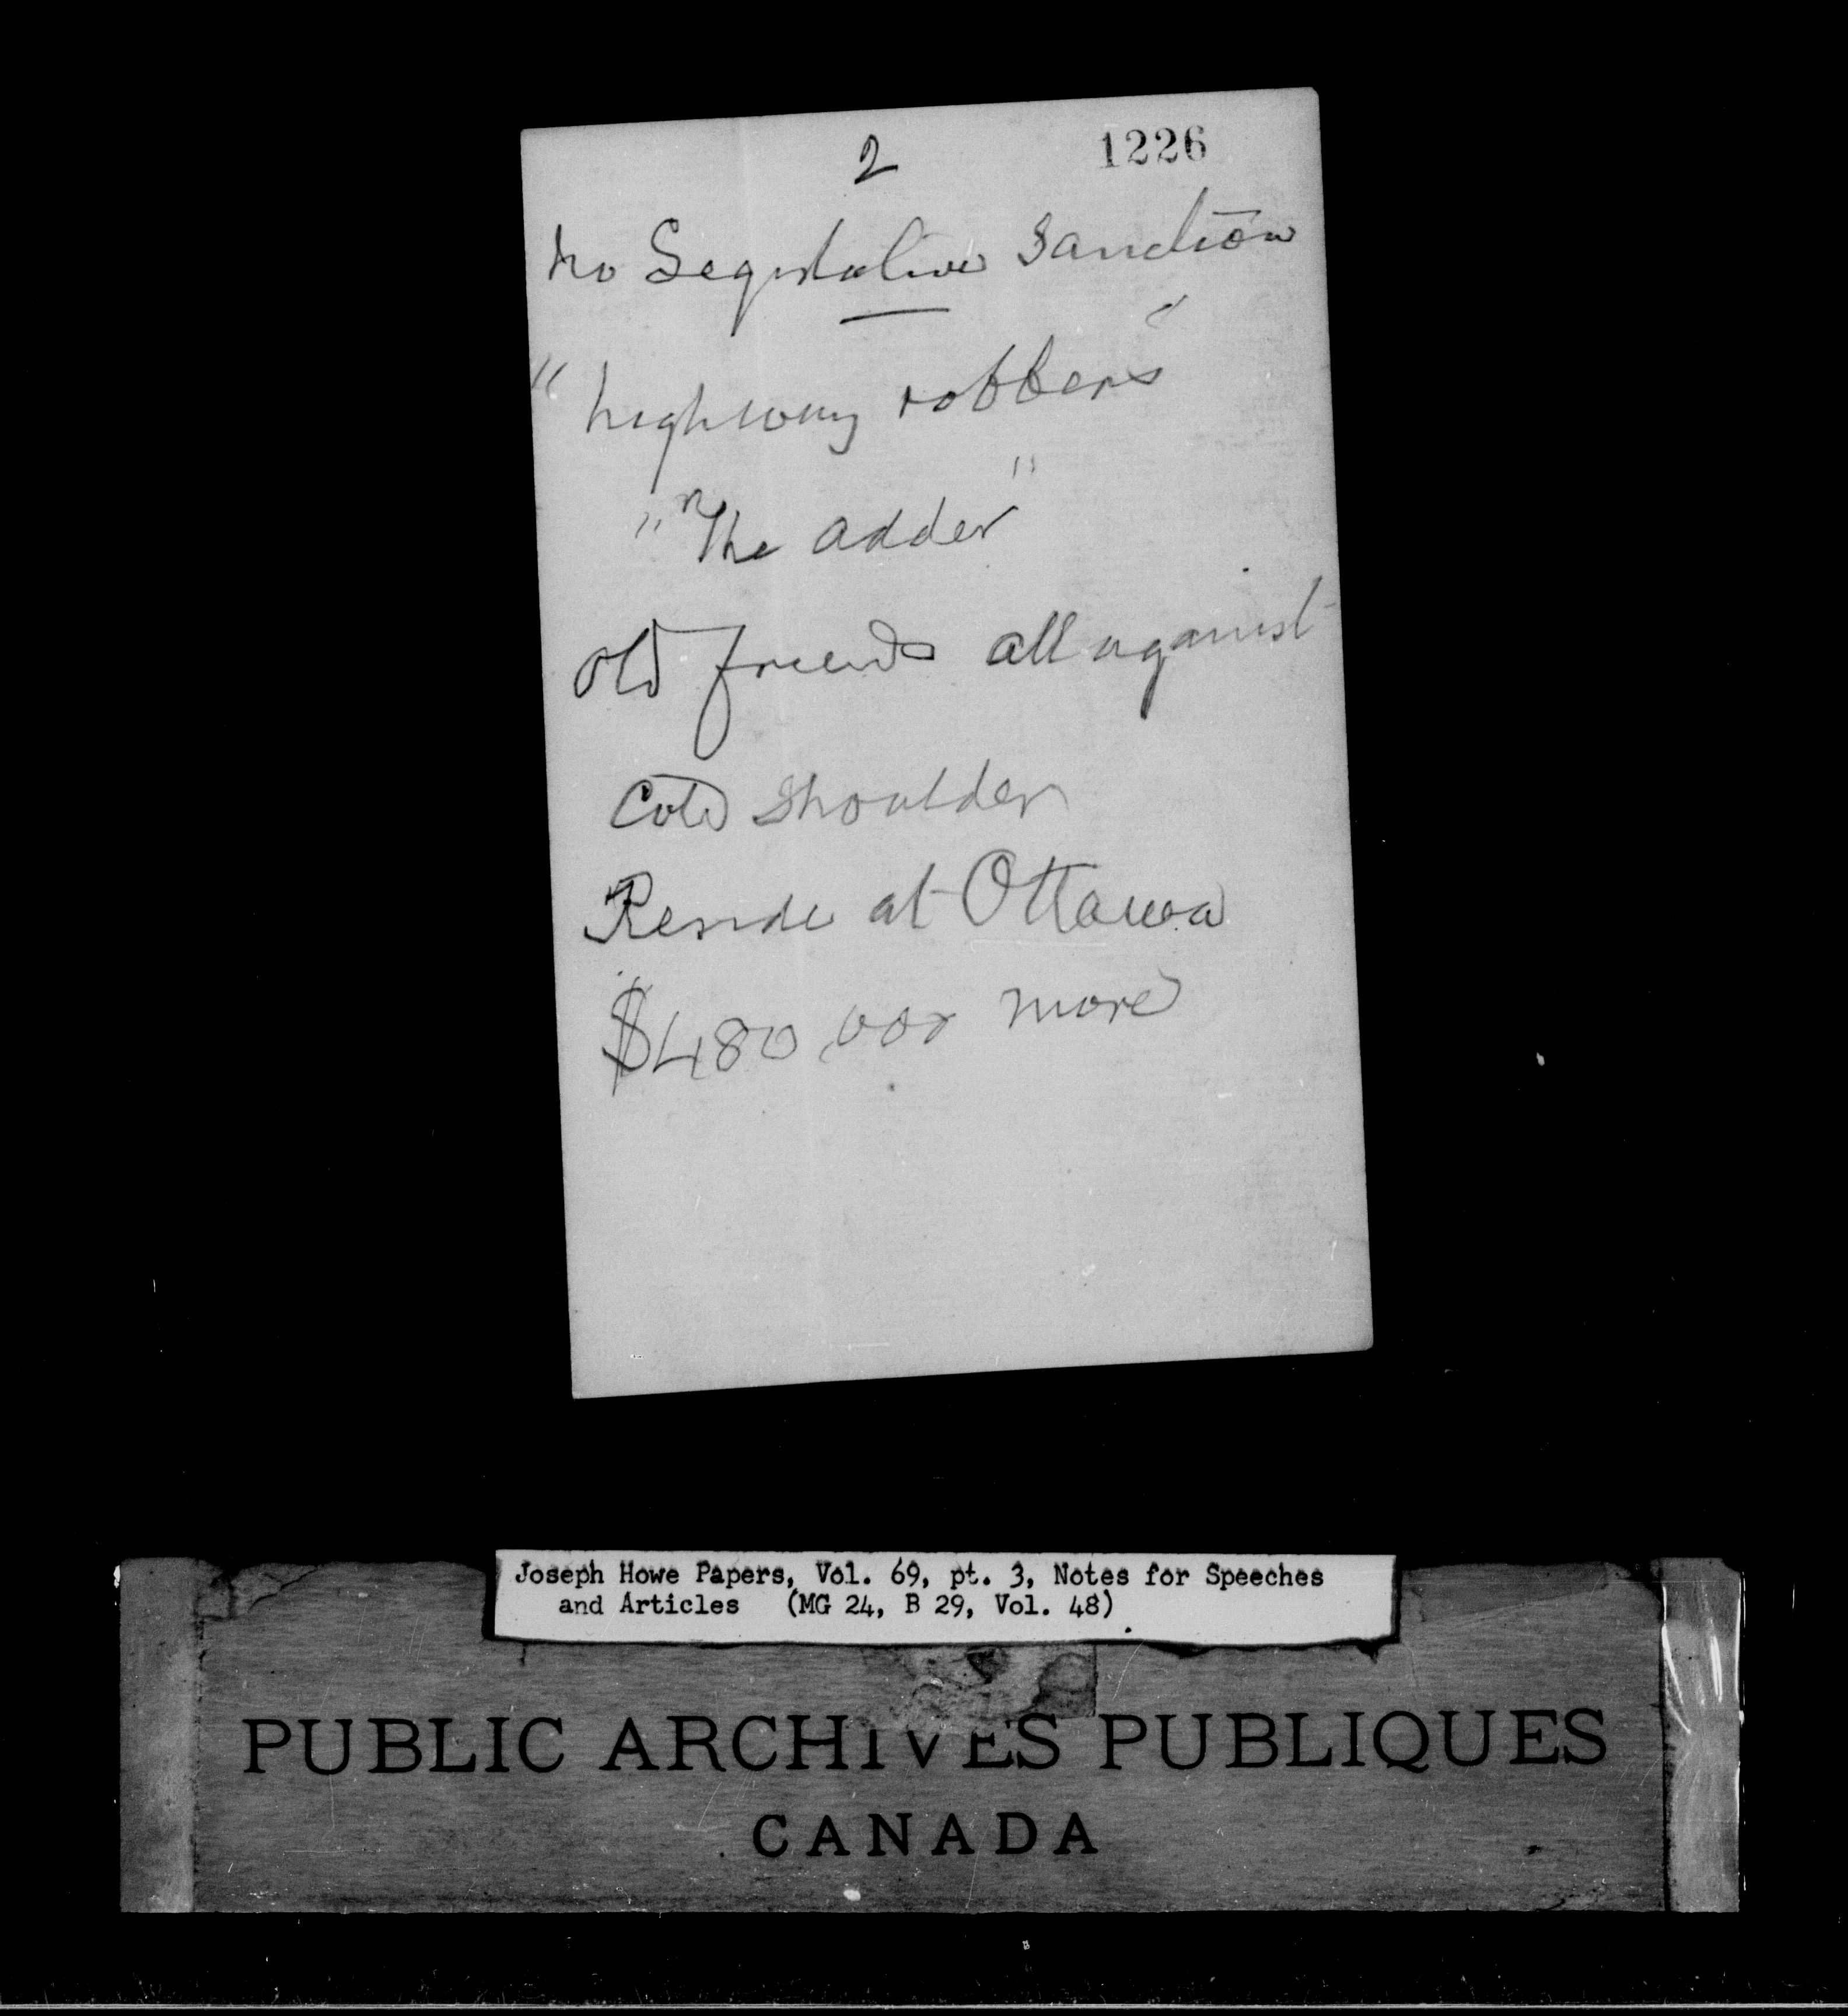 2 1226
No Legislative Sanction
"highway robbers"
"The adder"
Old friends all against
Cold Shoulder
Reside at Ottawa
$480,000 more
Joseph Howe Papers, Vol. 69, pt. 3, Notes for Speeches
and Articles (MG 24, B 29, Vol. 48)
PUBLIC ARCHIVES PUBLIQUES
CANADA